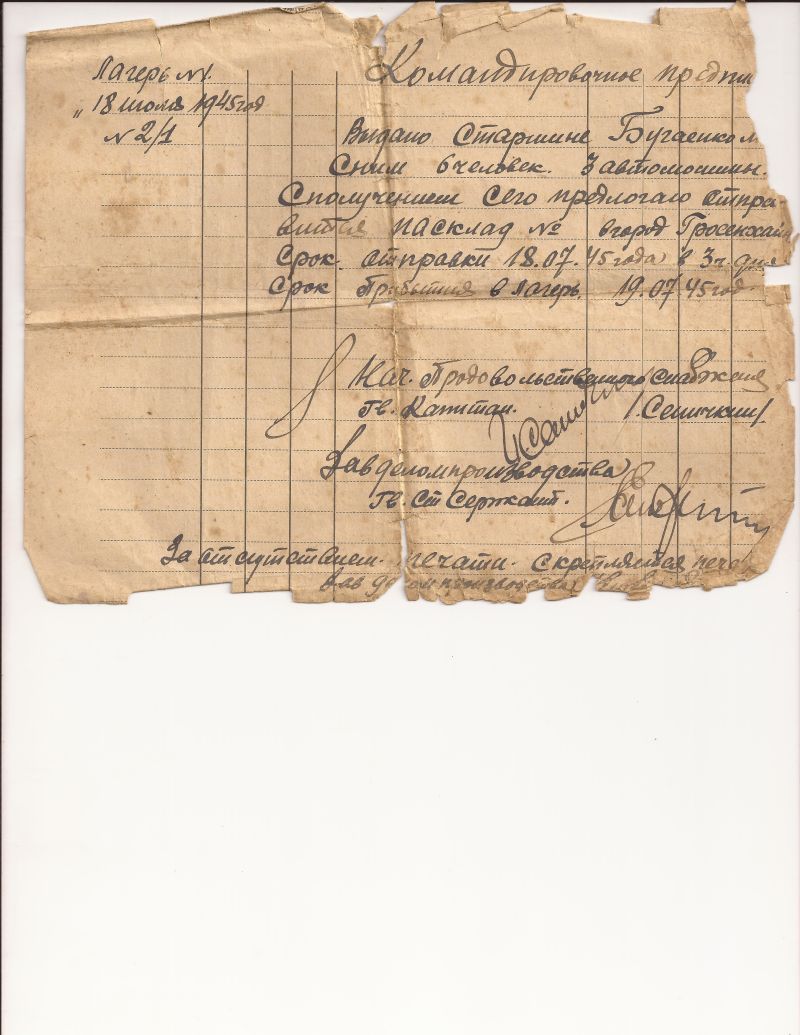 Лагерь №1.
Командировочное предпи
„18 июля 1945 год
№ 2/1
Выдано Старшине Бугаенком
Сним 6 человек. 3 автомошин.
Сполучением сего предлогаю отпра
вится на склад № вгород Гросенхайн
Срок отправки 18.07.45 года в 3 ч. дня
Срок Прибытия в Лагерь. 19.07.45 год.
Нач. Продовольственного Снабжения
Гв. Капитан. /. Сеничкин/.
Завделомпроизводства
Гв Ст Сержант.
За отсутствием печати. скрепляется